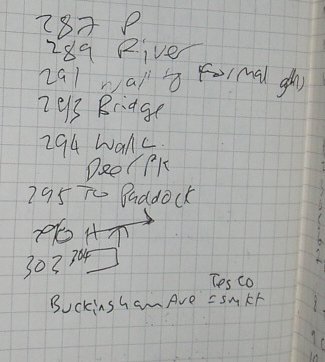 287 P
289 River
291 wall of formal gdn
293 Bridge
294 Wall
Deer Pk
295 To Paddock
303 304
Tesco
Buckingham Ave